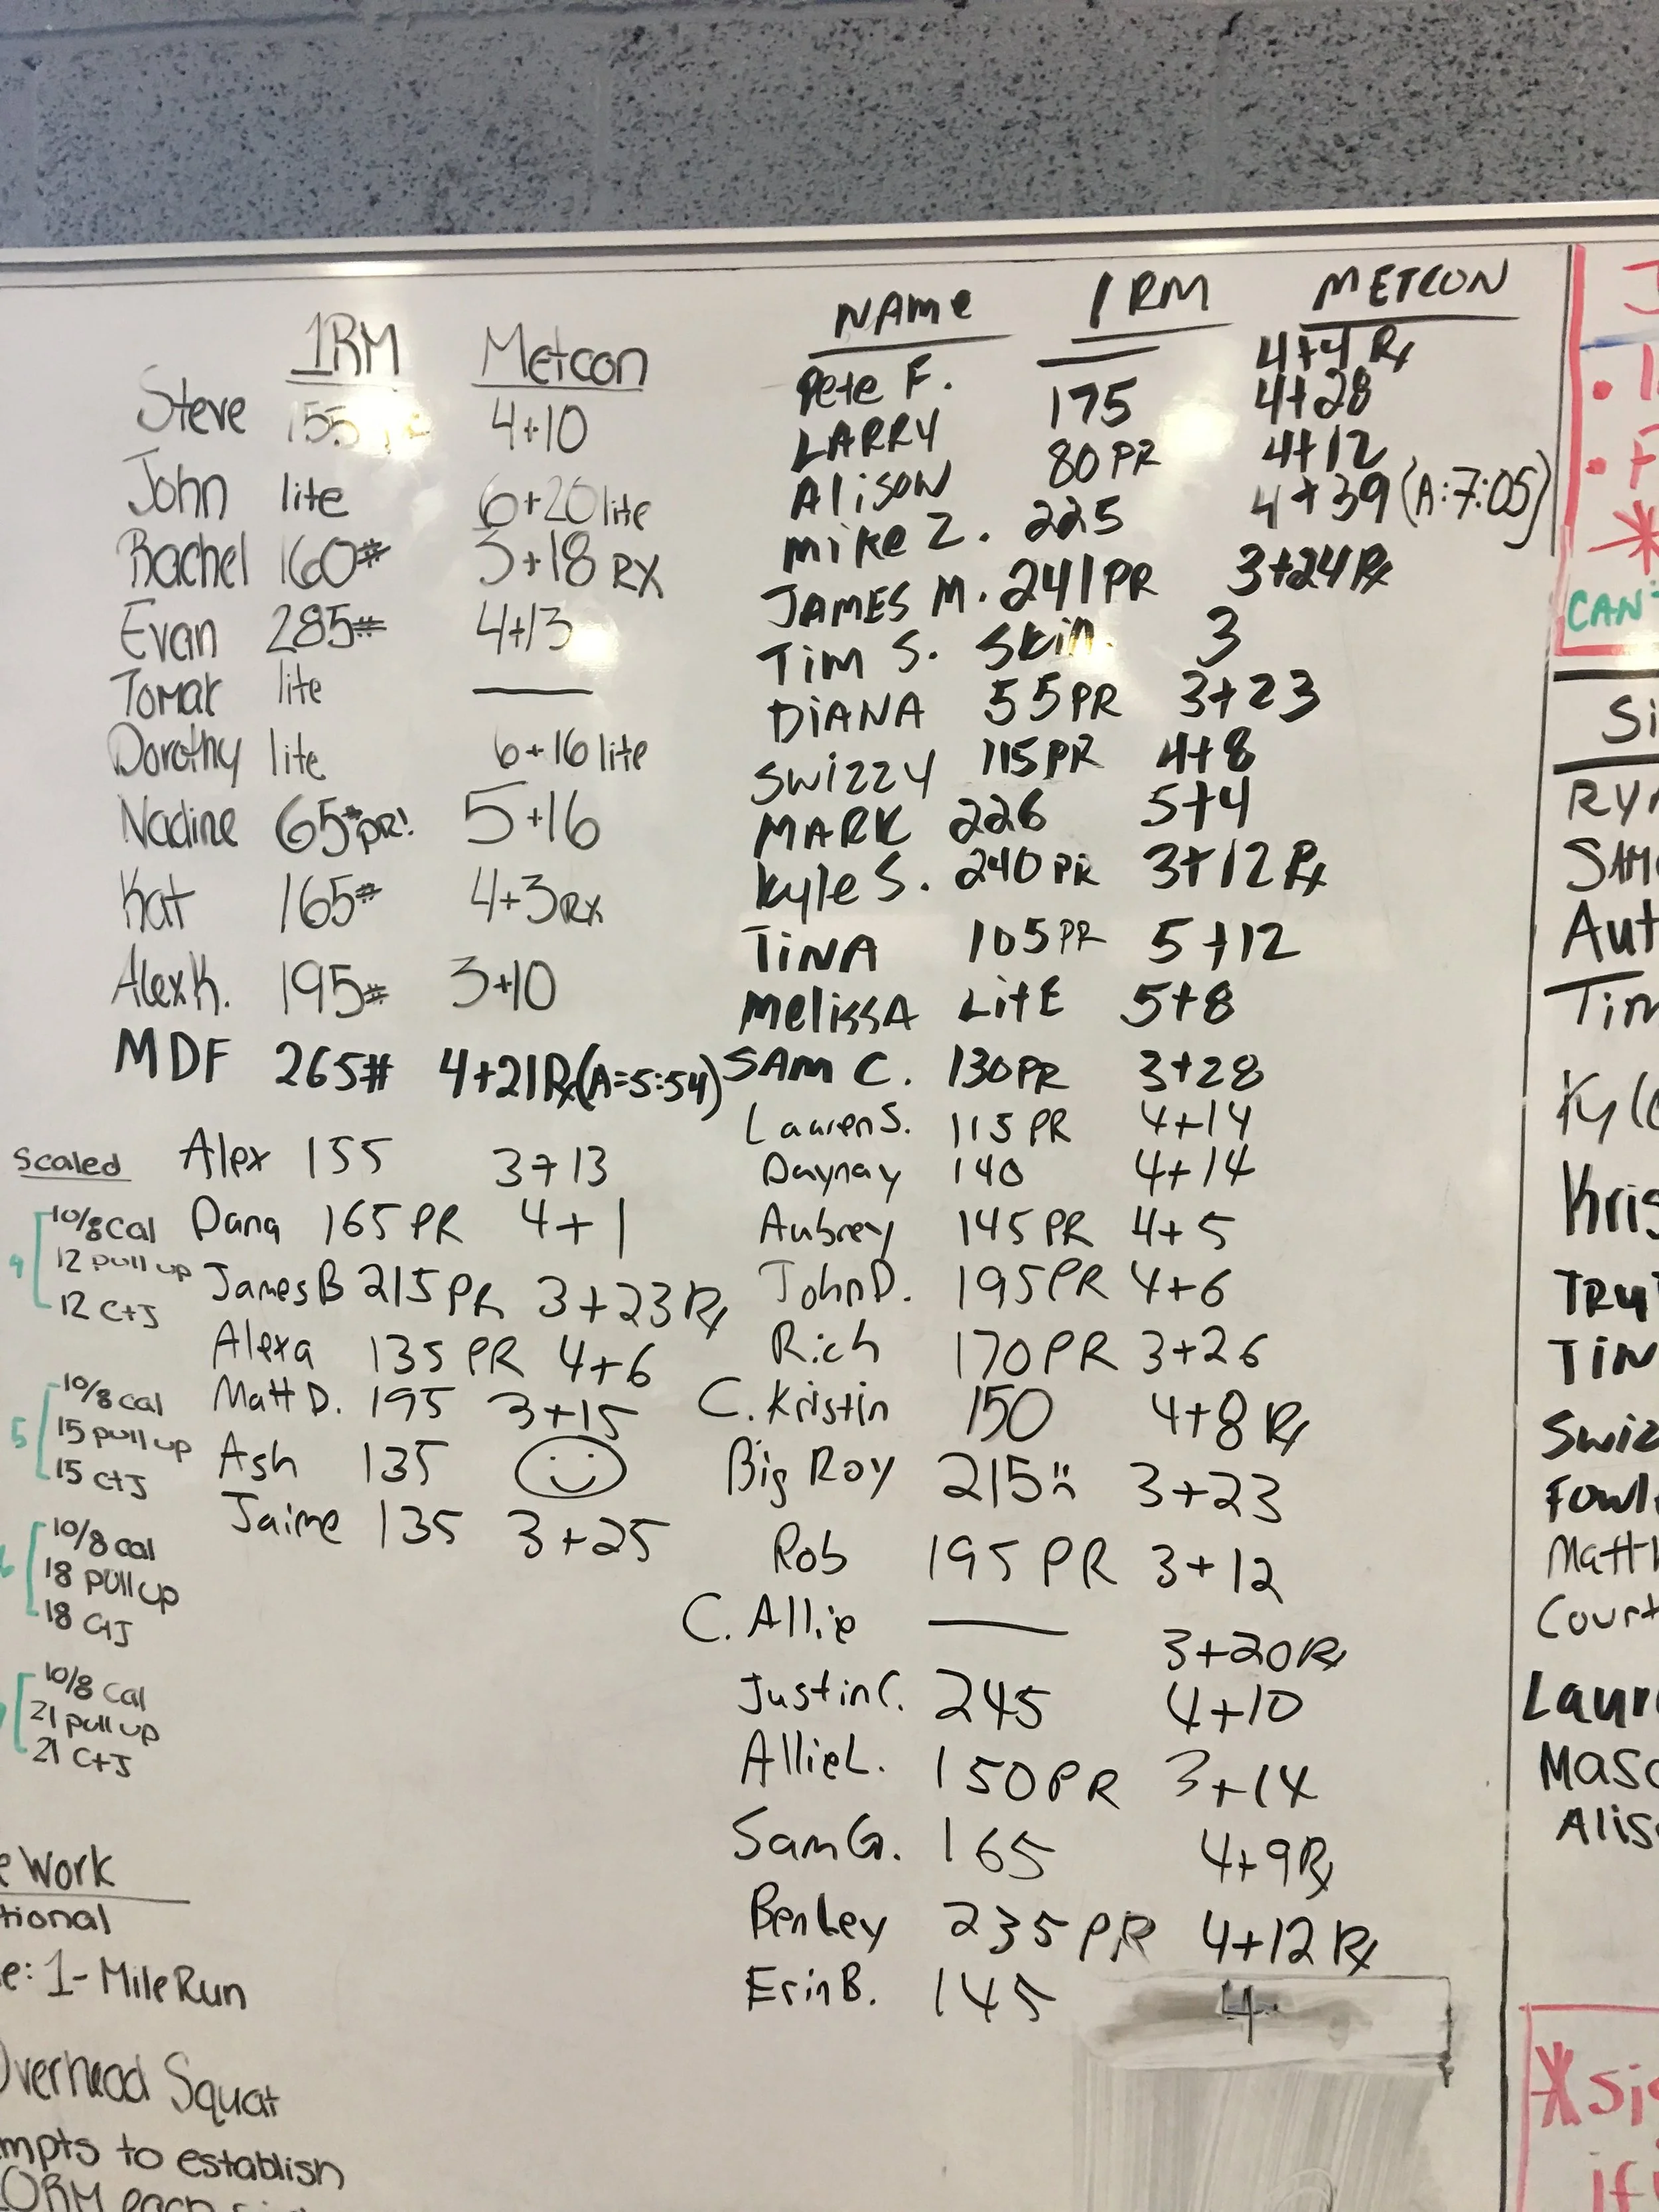 1RM Metcon
Steve 155 4+10
John lite 6+20 lite
Rachel 160# 3+18 RX
Evan 285# 4+13
Tomar lite —
Dorothy lite 6+16 lite
Nadine 65# PR! 5+16
Kat 165# 4+3 RX
Alex K. 195# 3+10
MDF 265# 4+21 Rx (A=5:54)
Alex 155 3+13
Dana 165 PR 4+1
James B 215 PR 3+23 Rx
Alexa 135 PR 4+6
Matt D. 195 3+15
Ash 135
Jaime 135 3+25
Scaled
4
10/8 Cal
12 pull up
12 C+J
5
10/8 cal
15 pull up
15 C+J
10/8 cal
18 pull up
18 C+J
10/8 cal
21 pull up
21 C+J
Work
tional
e: 1-Mile Run
Overhead Squat
mpts to establish
NAMe 1RM METCON
Pete F. — 4+4 Rx
LARRY 175 4+28
AlisoN 80 PR 4+12
mike Z. 225 4+39 (A:7:05)
JAMES M. 241 PR 3+24 Rx
Tim S. Skin. 3
DiANA 55 PR 3+23
SwizzY 115 PR 4+8
MARK 226 5+4
Kyle S. 240 PR 3+12 Rx
TiNA 105 PR 5+12
MelissA LitE 5+8
SAm C. 130 PR 3+28
Lauren S. 115 PR 4+14
Daynay 140 4+14
Aubrey 145 PR 4+5
John D. 195 PR 4+6
Rich 170 PR 3+26
C. Kristin 150 4+8 Rx
Big Roy 215 :( 3+23
Rob 195 PR 3+12
C. Allie — 3+20 Rx
Justin C. 245 4+10
Allie L. 150 PR 3+14
Sam G. 165 4+9 Rx
Benley 235 PR 4+12 Rx
Erin B. 145 4
CAN'T
Si
RYA
SAM
Aut
Tim
Kyle
Kris
TRU
TiN
Swiz
Fowl
Matt
Court
Laur
Masc
Alis
*sig
if